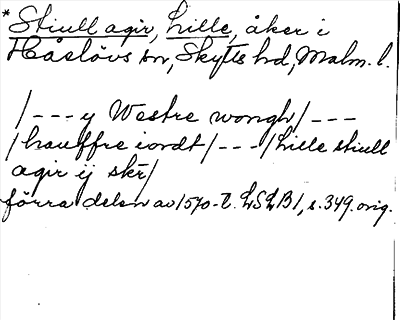 * Stiull agir, Lille, åker i
Håslövs sn, Skytts hd, Malm. l.
/--- y Westre wongh/---
/hauffre iordt/---/Lille stiull
agir ij skr/
förra delen av 1570-t. LSLB 1, s. 349. orig.